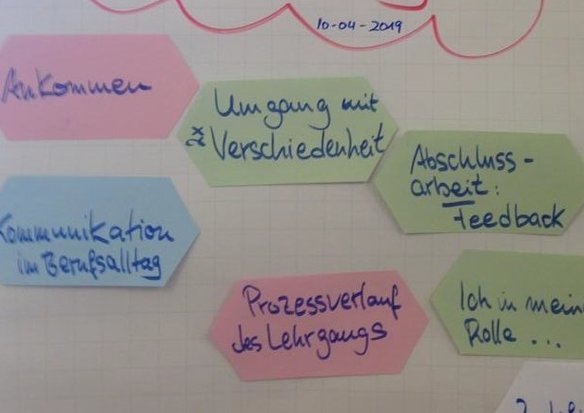 10-04-2019
Ankommen
2x
Umgang mit
Verschiedenheit
Abschluss-
arbeit:
Feedback
Kommunikation
im Berufsalltag
Prozessverlauf
des Lehrgangs
Ich in mein
Rolle ...